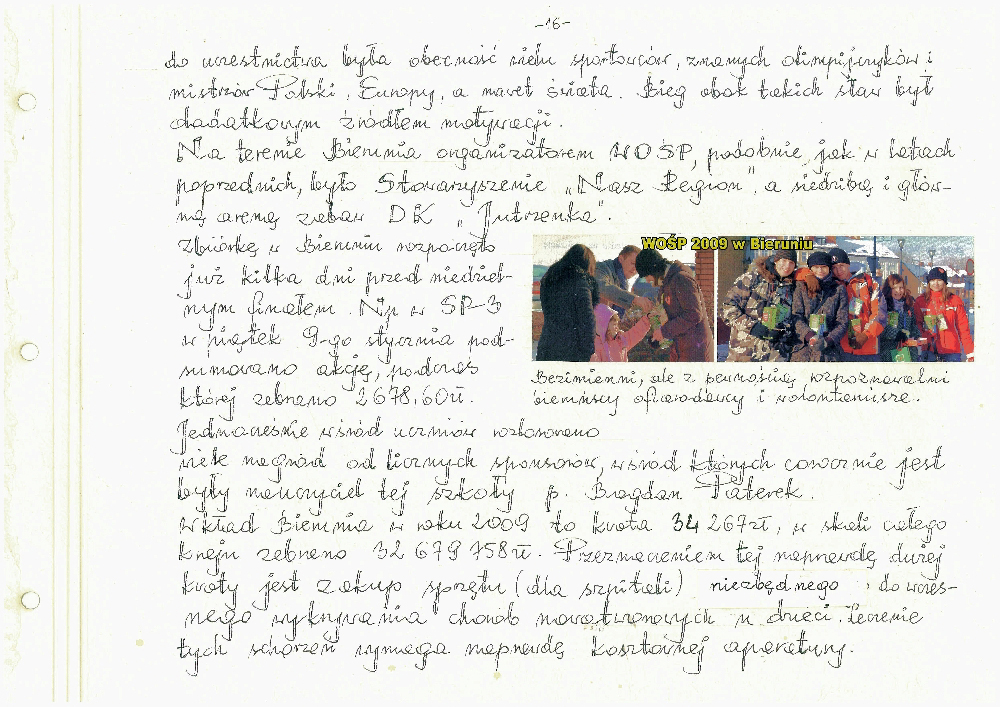 -16-
do uczestnictwa była obecność wielu sportowców, znanych olimpijczyków i
mistrzów Polski, Europy, a nawet świata. Bieg obok takich sław był
dodatkowym źródłem motywacji.
Na terenie Bierunia organizatorem WOŚP, podobnie jak w latach
poprzednich, było Stowarzyszenie „Nasz Region”, a siedzibą i głów-
ną areną zabaw DK „Jutrzenka”.
Zbiórkę w Bieruniu rozpoczęto
już kilka dni przed niedziel-
nym finałem. Np w SP-3
w piątek 9-go stycznia pod-
sumowano akcję, podczas
której zebrano 2678,60zł.
Jednocześnie wśród uczniów rozlosowano
WOŚP 2009 w Bieruniu
Bezimienni, ale z pewnością rozpoznawalni
bieruńscy ofiarodawcy i wolontariusze.
wiele nagród od licznych sponsorów, wśród których corocznie jest
były nauczyciel tej szkoły p. Bogdan Paterek.
Wkład Bierunia w roku 2009 to kwota 34 267zł, w skali całego
kraju zebrano 32 679 758zł. Przeznaczeniem tej naprawdę dużej
kwoty jest zakup sprzętu (dla szpitali) niezbędnego do wczes-
nego wykrywania chorób nowotworowych u dzieci. Leczenie
tych schorzeń wymaga naprawdę kosztownej aparatury.